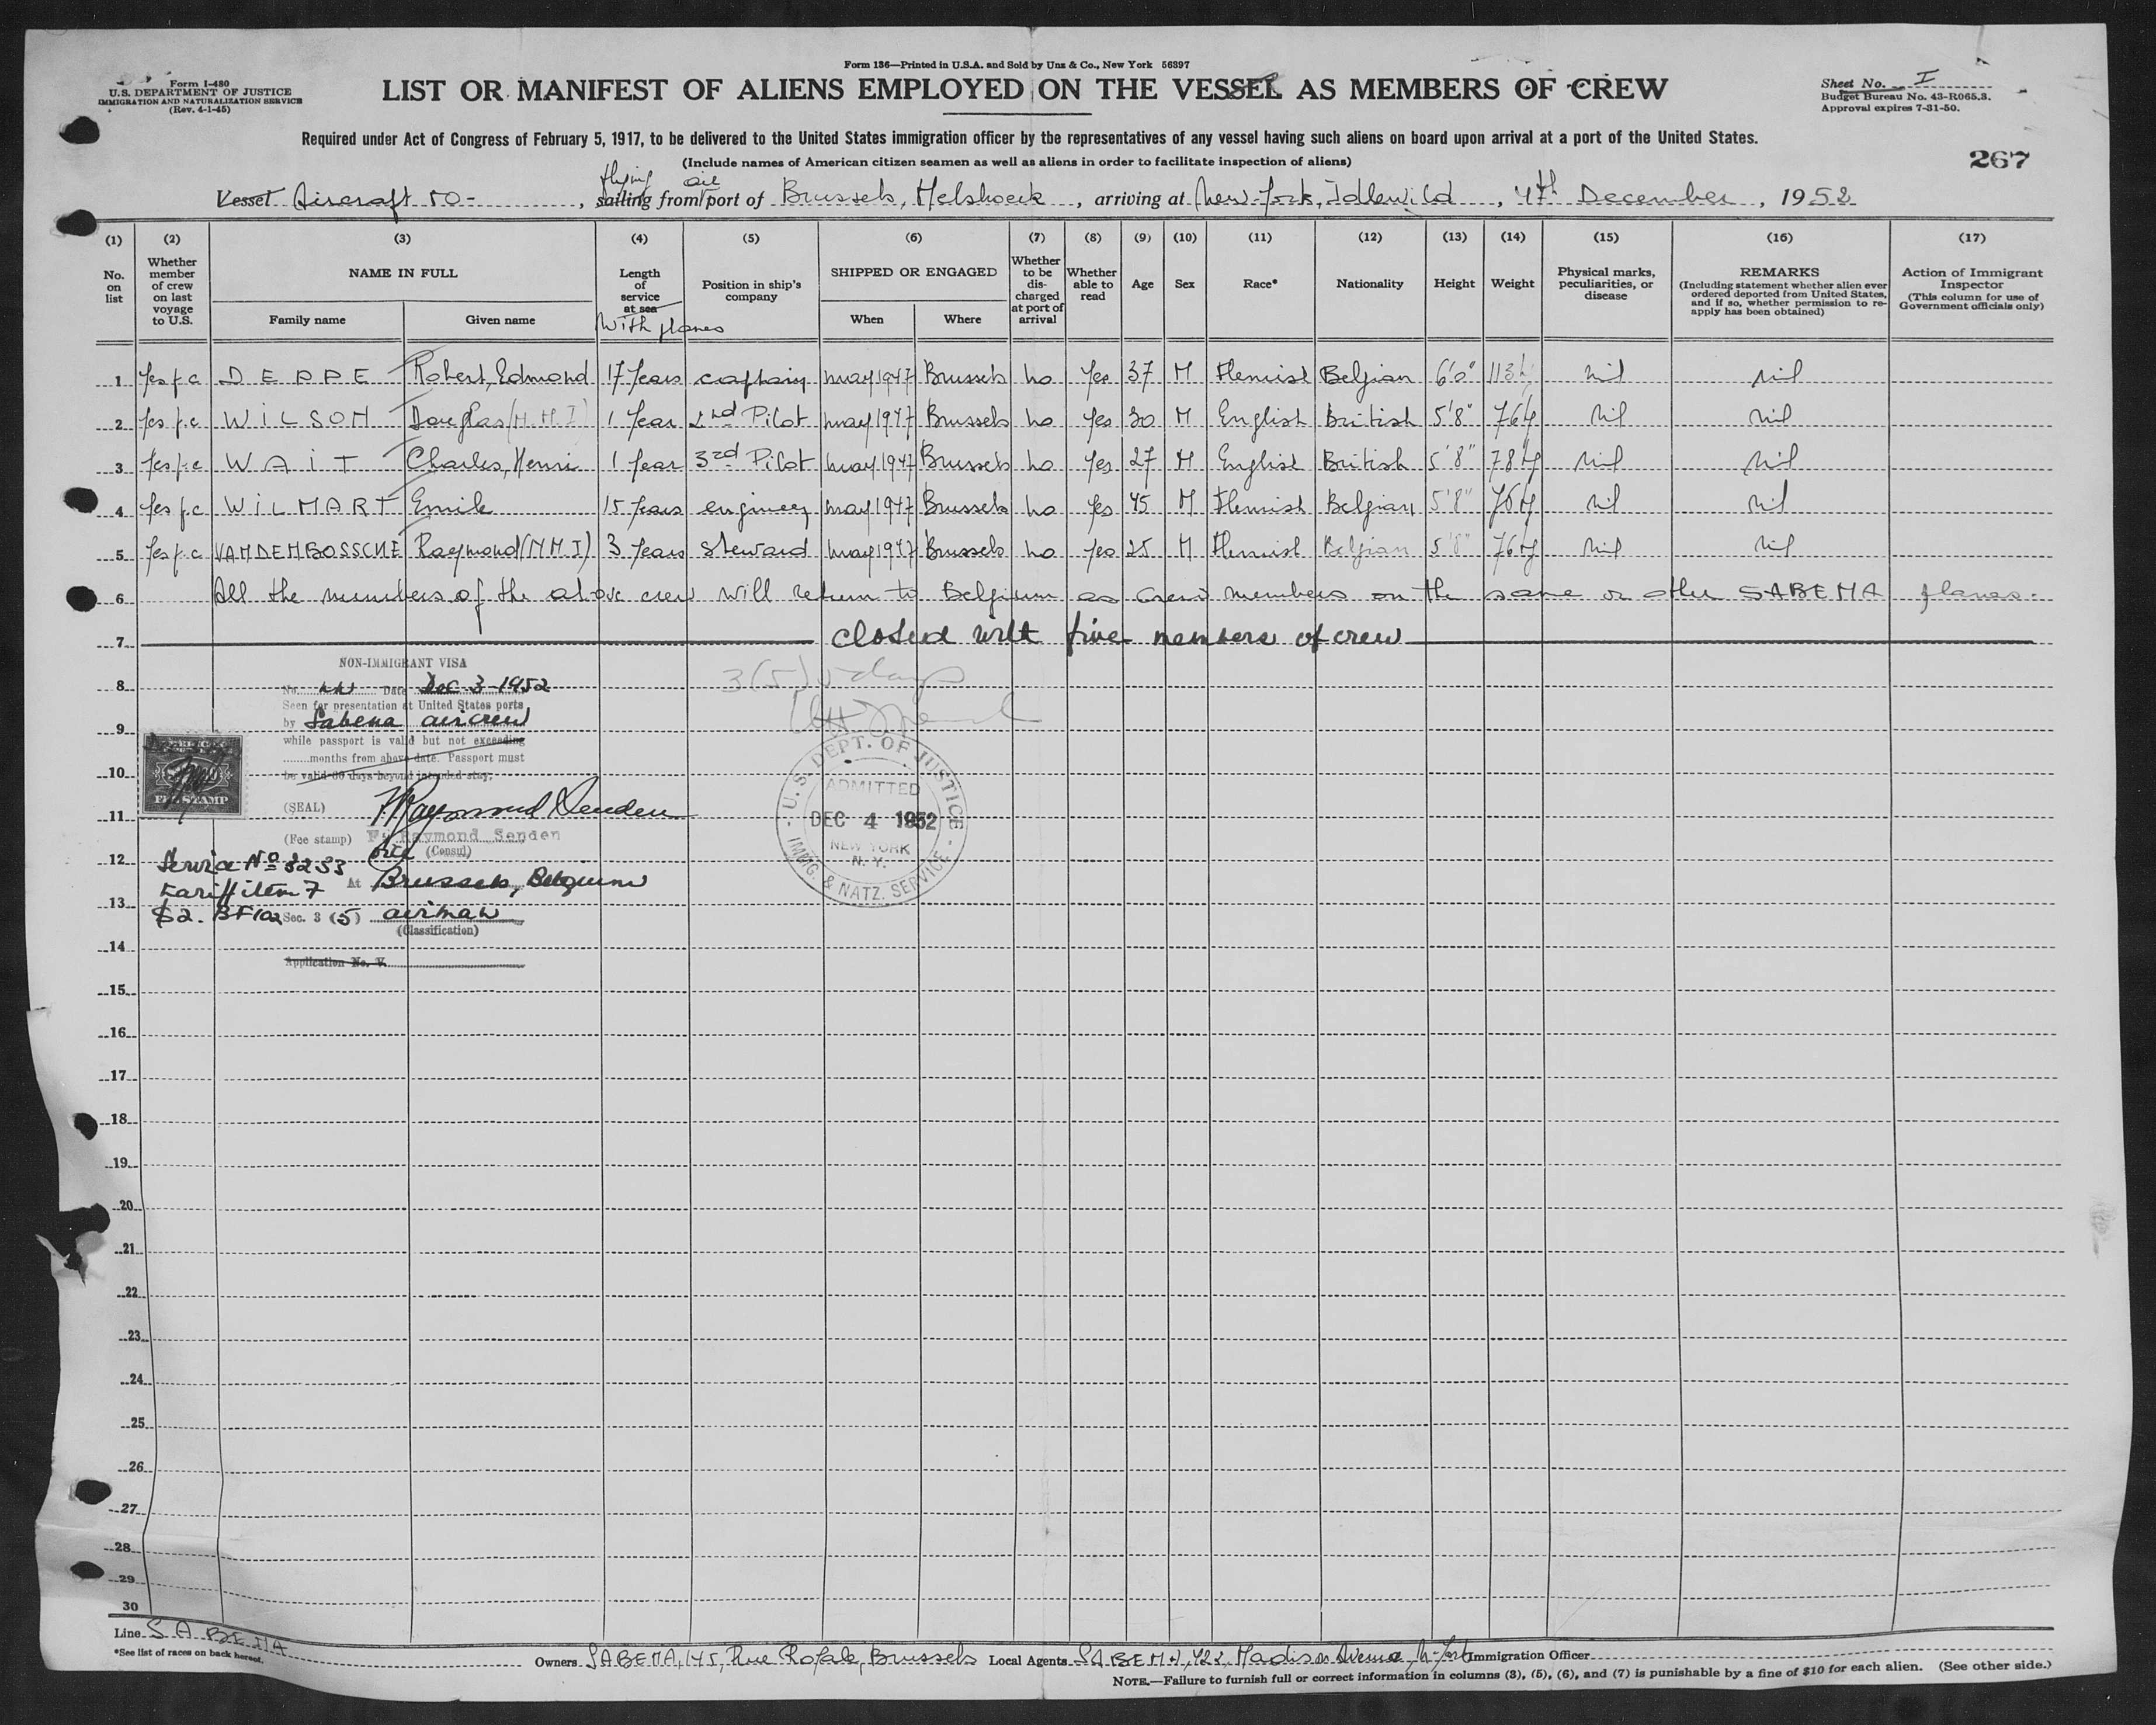 Form I-480
U.S. DEPARTMENT OF JUSTICE
IMMIGRATION AND NATURALIZATION SERVICE
(Rev. 4-1-45)
Form 136—Printed in U.S.A. and Sold by Unz & Co., New York 56397
LIST OR MANIFEST OF ALIENS EMPLOYED ON THE VESSEL AS MEMBERS OF CREW
Sheet No. I
Budget Bureau No. 43-R065.3.
Approval expires 7-31-50.
Required under Act of Congress of February 5, 1917, to be delivered to the United States immigration officer by the representatives of any vessel having such aliens on board upon arrival at a port of the United States.
(Include names of American citizen seamen as well as aliens in order to facilitate inspection of aliens)
267
flying air
Vessel Aircraft OO-, sailing from port of Brussels, Melsbroeck, arriving at New-York, Idlewild, 4th December, 1952
(1) (2) (3) (4) (5) (6) (7) (8) (9) (10) (11) (12) (13) (14) (15) (16) (17)
No. on list
Whether member of crew on last voyage to U.S.
NAME IN FULL
Family name Given name
Length of service at sea
With planes
Position in ship's company
SHIPPED OR ENGAGED
When Where
Whether to be discharged at port of arrival
Whether able to read
Age
Sex
Race*
Nationality
Height
Weight
Physical marks, peculiarities, or disease
REMARKS
(Including statement whether alien ever ordered deported from United States, and if so, whether permission to reapply has been obtained)
Action of Immigrant Inspector
(This column for use of Government officials only)
1 Yes f.c DEPPE Robert, Edmond 17 Years captain may 1947 Brussels no Yes 37 M Flemish Belgian 6'0" 113 nil nil
2 Yes f.c WILSON Douglas (N.M.I) 1 Year 2nd Pilot may 1947 Brussels no Yes 30 M English British 5'8" 76 nil nil
3 Yes f.c WAIT Charles, Henri 1 Year 3rd Pilot may 1947 Brussels no Yes 27 M English British 5'8" 78 nil nil
4 Yes f.c WILMART Emile 15 Years engineer may 1947 Brussels no Yes 45 M Flemish Belgian 5'8" 76 nil nil
5 Yes f.c VANDENBOSSCHE Raymond (N.M.I) 3 Years steward may 1947 Brussels no Yes 25 M Flemish Belgian 5'8" 76 nil nil
6 All the members of the above crew will return to Belgium as crew members on the same or other SABENA planes.
7 closed with five members of crew
8
9
10
11
12
13
14
15
16
17
18
19
20
21
22
23
24
25
26
27
28
29
30
NON-IMMIGRANT VISA
No. Date Dec-3-1952
Seen for presentation at United States ports
by Sabena aircrew
while passport is valid but not exceeding
months from above date. Passport must
be valid 60 days beyond intended stay.
(SEAL) Raymond Senden
(Fee stamp) Raymond Senden
(Consul)
Service No 8233
At Brussels, Belgium
Tariff item 7
$2. BF 102 Sec. 3 (5) airman
(Classification)
Application No. V.
FEE STAMP
3(5) 5 days
U.S. DEPT. OF JUSTICE
ADMITTED
DEC 4 1952
NEW YORK
N. Y.
IMMIG. & NATZ. SERVICE
Line SABENA
*See list of races on back hereof.
Owners SABENA, 145, Rue Royale, Brussels Local Agents SABENA, 422, Madison Avenue, N-York Immigration Officer
NOTE.—Failure to furnish full or correct information in columns (3), (5), (6), and (7) is punishable by a fine of $10 for each alien. (See other side.)